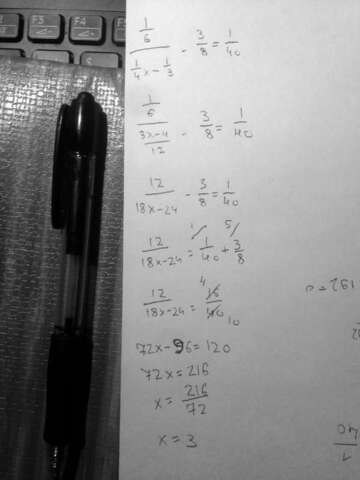 F3 F4
(1/6)/(1/4x - 1/3) - 3/8 = 1/40
(1/6)/((3x-4)/12) - 3/8 = 1/40
12/(18x-24) - 3/8 = 1/40
1/ 5/
12/(18x-24) = 1/40 + 3/8
12/(18x-24) = 16/40
4
10
72x-96=120
72x=216
x = 216/72
x = 3
192=0
1/40